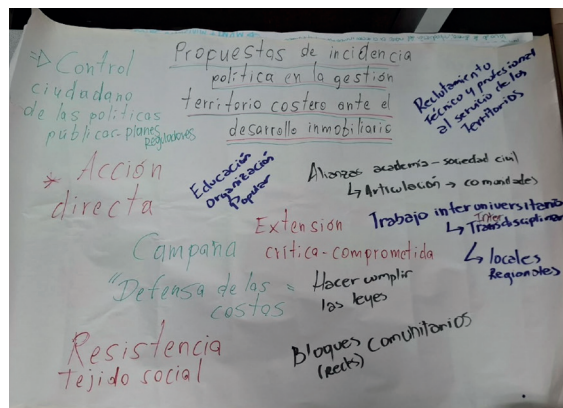 Propuestas de incidencia
política en la gestión
territorio costero ante el
desarrollo inmobiliario
⇒ Control
ciudadano
de las políticas
públicas-planes
Reguladores
Reclutamiento
técnico y profesional
al servicio de los
Territorios
* Acción
directa
Educación
Organización
Popular
Alianzas academia-sociedad civil
↳ Articulación → comunidades
Extensión
crítica-comprometida
Trabajo interuniversitario
Inter
↳ Transdisciplinar
↳ locales
Regionales
Campaña
"Defensa de las
costas
Hacer cumplir
las leyes
Resistencia
tejido social
Bloques comunitarios